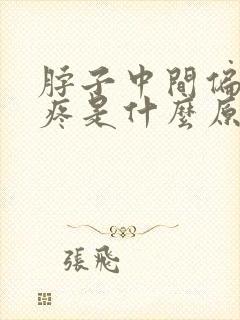 脖子中間偏
疼是什麼原
張飛